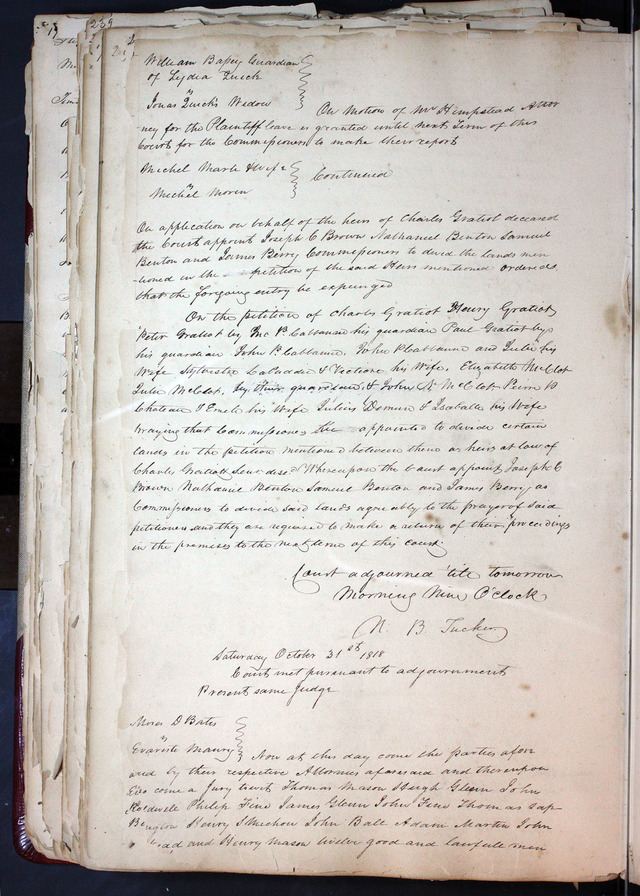 239
William Bapey Guardian
of Lydia Quick
vs
Jonas Quicks Widow
On Motion of Mr Hempstead Attor
ney for the Plaintiff leave is granted until next Term of this
Court for the Commissioners to make their report
Michel Marle & wife
vs
Michel Moren
Continued
On application on behalf of the heirs of Charles Gratiot deceased
the Court appoint Joseph C Brown Nathaniel Benton Samuel
Benton and James Berry Commissioners to divid the lands men
tioned in the petition of the said Heirs mentioned ordered
that the foregoing entry be expunged
On the petition of Charles Gratiot Henry Gratiot
Peter Gratiot by Jno P. Cabbanne his guardian Paul Gratiot by
his guardian John P. Cabbanne, John P Cabbanne and Julie his
Wife Sylvestre Labaddie & Victoire his Wife, Elizabeth McClot
Julie McClot, by their guardian & John N McClot Peirre D
Choteau & Emele his Wife Julius Demun & Isabelle his Wife
Praying that Commissioners be appointed to devide certain
lands in the petition mentioned between them as heirs at law of
Charles Gratiot Senr decd Whereupon the Court appoint Joseph C
Brown Nathaniel Benton Samuel Benton and James Berry as
Commissioners to devide said lands agreeably to the prayer of said
petitioners and they are required to make a return of their proceedings
in the premises to the next term of this court
Court adjourned 'till tomorrow
Morning Nine O'Clock
N. B. Tucker
Saturday October 31st 1818
Court met pursuant to adjournment
Present same Judge
Moses D Bates
vs
Evariste Maury
Now at this day come the parties afore
said by their respective Attornies aforesaid and thereupon
also come a Jury towit Thomas Mason Hugh Glenn John
Caldwell Philip Fine James Glenn John Fine Thomas Sap
Henry S Mechou John Ball Adam Martin John
and Henry Mason twelve good and lawfull men